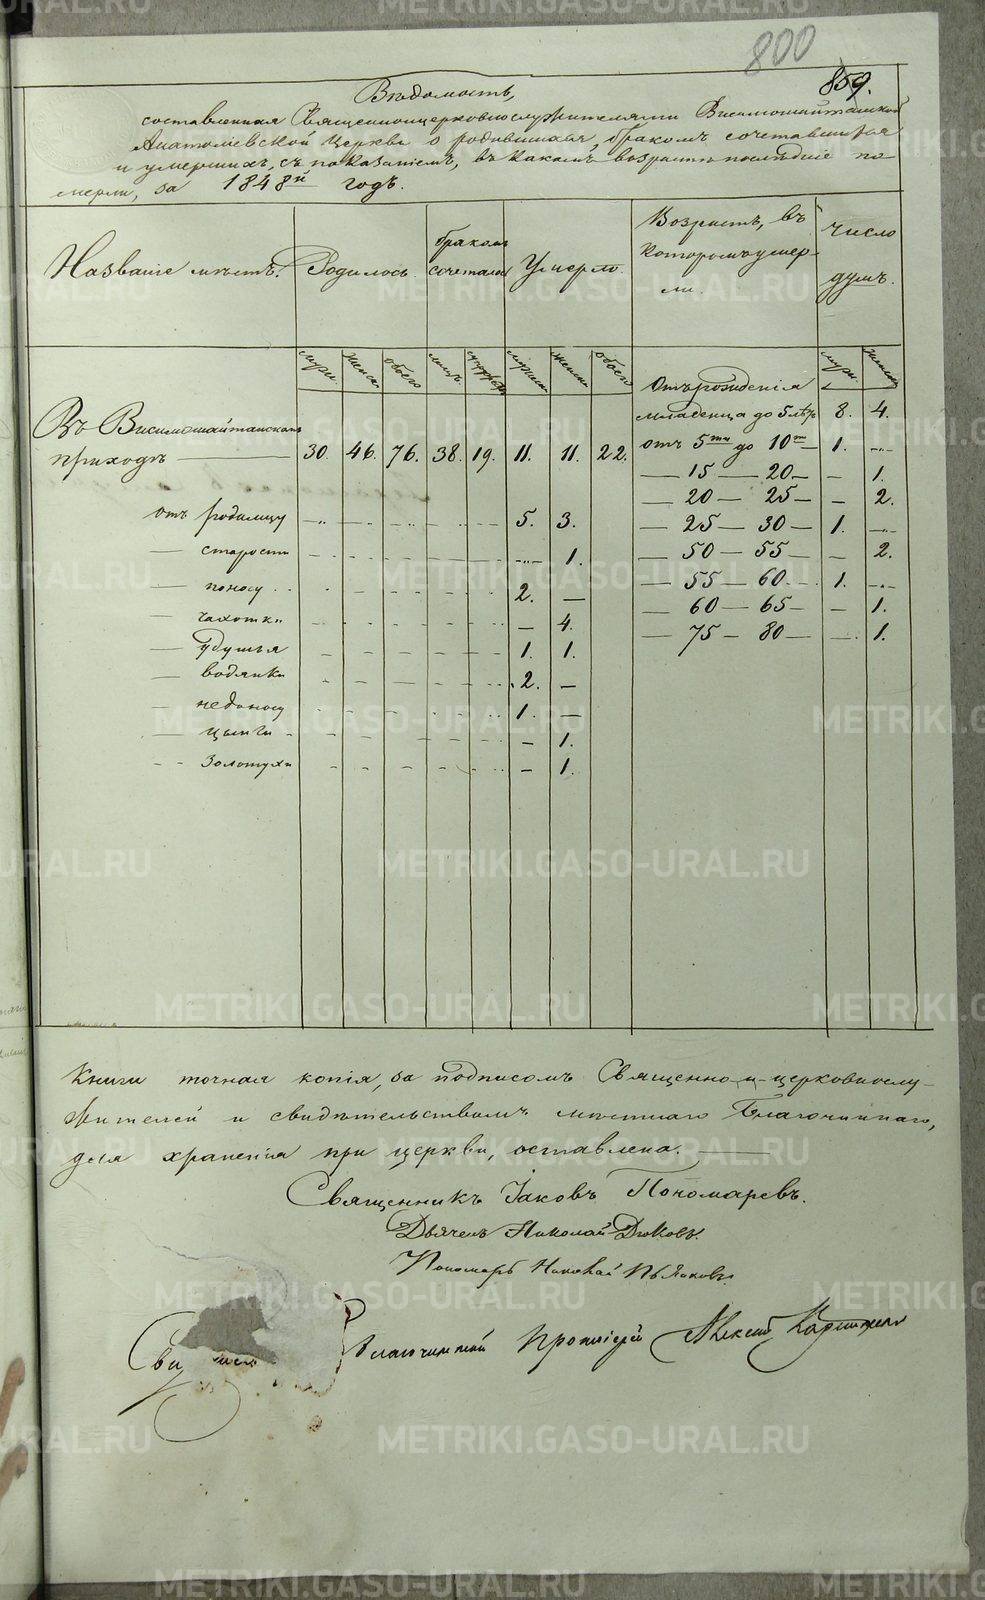 800
859.
Вѣдомость,
составленная Священноцерковнослужителями Висимошайтанской
Анатоліевской церкви о родившихся, бракомъ сочетавшихся
и умершихъ, съ показаніемъ, въ какомъ возрастѣ послѣдніе по-
мерли, за 1848й годъ.
Названіе мѣстъ. Родилось. бракомъ сочетались Умерло Возрастъ, въ которомъ умерли. Число душъ.
муж. женск. обоего лицъ. мужеск. женск. обоего муж. женск.
Въ Висимошайтанскомъ приходѣ 30. 46. 76. 38. 19. 11. 11. 22.
отъ родимцу 5. 3.
— старости 1.
— поносу 2. —
— чахотки — 4.
— удушья 1. 1.
— водянки 2. —
— недоносу 1. —
— цынги — 1.
— золотухи — 1.
Отъ рожденія
младенца до 5 лѣтъ 8. 4.
отъ 5ти до 10ти 1. —
— 15 — 20 — — 1.
— 20 — 25 — — 2.
— 25 — 30 — 1. —
— 50 — 55 — — 2.
— 55 — 60 — 1. —
— 60 — 65 — — 1.
— 75 — 80 — — 1.
Книги точная копія, за подписомъ Священно-и-церковнослу-
жителей и свидѣтельствомъ мѣстнаго Благочиннаго,
для храненія при церкви, оставлена.
Священникъ Іаковъ Пономаревъ.
Дьячекъ Николай Дюковъ
Пономарь Николай Пьянковъ
Благочинный Протоіерей Алексій Карпинскій
METRIKI.GASO-URAL.RU